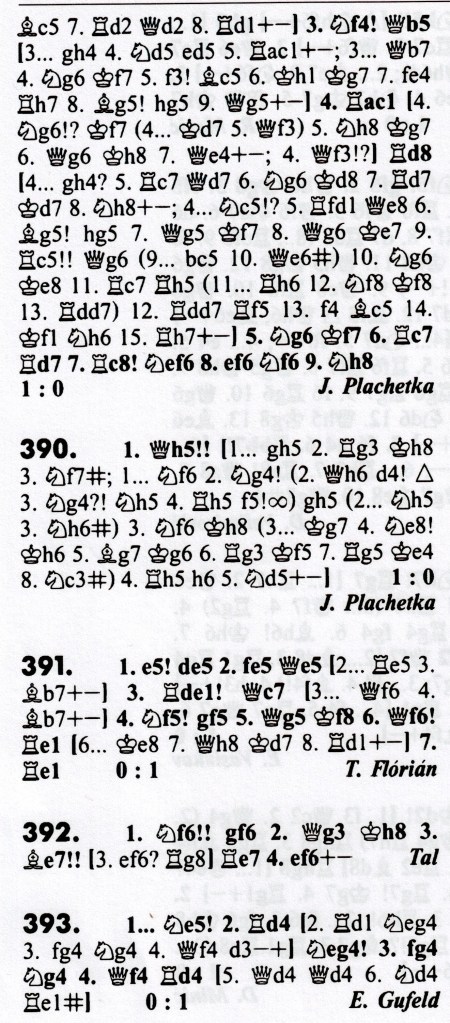 ♗c5 7. ♖d2 ♕d2 8. ♖d1+−] 3. ♘f4! ♕b5
[3... gh4 4. ♘d5 ed5 5. ♖ac1+−; 3... ♕b7
4. ♘g6 ♔f7 5. f3! ♗c5 6. ♔h1 ♔g7 7. fe4
♖h7 8. ♗g5! hg5 9. ♕g5+−] 4. ♖ac1 [4.
♘g6!? ♔f7 (4... ♔d7 5. ♕f3) 5. ♘h8 ♔g7
6. ♕g6 ♔h8 7. ♕e4+−; 4. ♕f3!?] ♖d8
[4... gh4? 5. ♖c7 ♕d7 6. ♘g6 ♔d8 7. ♖d7
♔d7 8. ♘h8+−; 4... ♘c5!? 5. ♖fd1 ♕e8 6.
♗g5! hg5 7. ♕g5 ♔f7 8. ♕g6 ♔e7 9.
♖c5!! ♕g6 (9... bc5 10. ♕e6#) 10. ♘g6
♔e8 11. ♖c7 ♖h5 (11... ♖h6 12. ♘f8 ♔f8
13. ♖dd7) 12. ♖dd7 ♖f5 13. f4 ♗c5 14.
♔f1 ♘h6 15. ♖h7+−] 5. ♘g6 ♔f7 6. ♖c7
♖d7 7. ♖c8! ♘ef6 8. ef6 ♘f6 9. ♘h8
1 : 0 J. Plachetka
390. 1. ♕h5!! [1... gh5 2. ♖g3 ♔h8
3. ♘f7#; 1... ♘f6 2. ♘g4! (2. ♕h6 d4! △
3. ♘g4?! ♘h5 4. ♖h5 f5!∞) gh5 (2... ♘h5
3. ♘h6#) 3. ♘f6 ♔h8 (3... ♔g7 4. ♘e8!
♔h6 5. ♗g7 ♔g6 6. ♖g3 ♔f5 7. ♖g5 ♔e4
8. ♘c3#) 4. ♖h5 h6 5. ♘d5+−] 1 : 0
J. Plachetka
391. 1. e5! de5 2. fe5 ♕e5 [2... ♖e5 3.
♗b7+−] 3. ♖de1! ♕c7 [3... ♕f6 4.
♗b7+−] 4. ♘f5! gf5 5. ♕g5 ♔f8 6. ♕f6!
♖e1 [6... ♔e8 7. ♕h8 ♔d7 8. ♖d1+−] 7.
♖e1 0 : 1 T. Flórián
392. 1. ♘f6!! gf6 2. ♕g3 ♔h8 3.
♗e7!! [3. ef6? ♖g8] ♖e7 4. ef6+− Tal
393. 1... ♘e5! 2. ♖d4 [2. ♖d1 ♘eg4
3. fg4 ♘g4 4. ♕f4 d3−+] ♘eg4! 3. fg4
♘g4 4. ♕f4 ♖d4 [5. ♕d4 ♕d4 6. ♘d4
♖e1#] 0 : 1 E. Gufeld